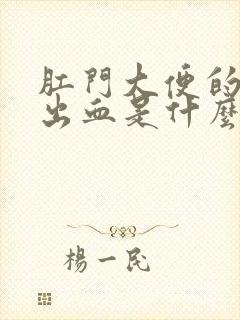 肛門大便的
出血是什麼
楊一民